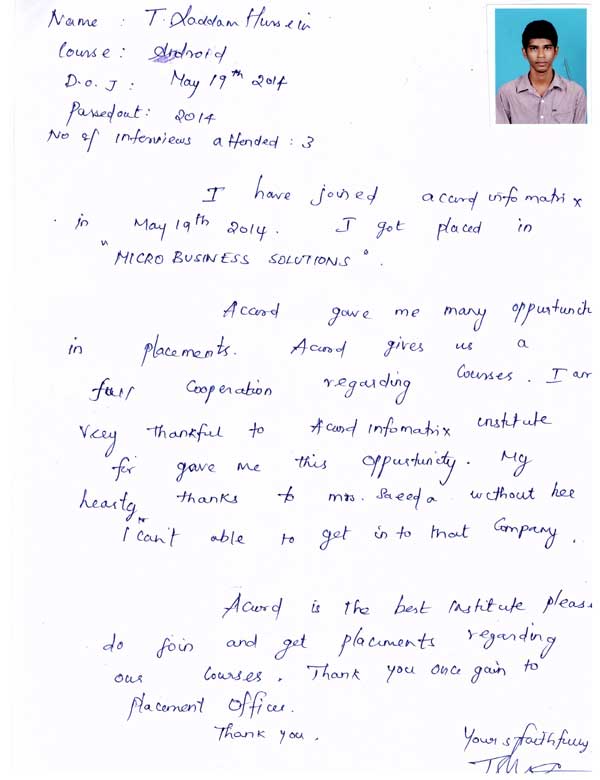 Name : T. Saddam Hussein
Course : Android
D.O.J : May 19th 2014
Passedout : 2014
No of interviews attended : 3
I have joined acard infomatrix
in May 19th 2014. I got placed in
"MICRO BUSINESS SOLUTIONS".
Acard gave me many oppurtunit
in placements. Acard gives us a
full Cooperation regarding Courses. I am
Very thankful to Acard infomatrix institute
for gave me this oppurtunity. My
hearty thanks to mrs. Saeeda without her
I can't able to get into that Company.
Acard is the best institute please
do join and get placments regarding
our Courses. Thank you once gain to
placement Officer.
Thank you.
Yours faithfully